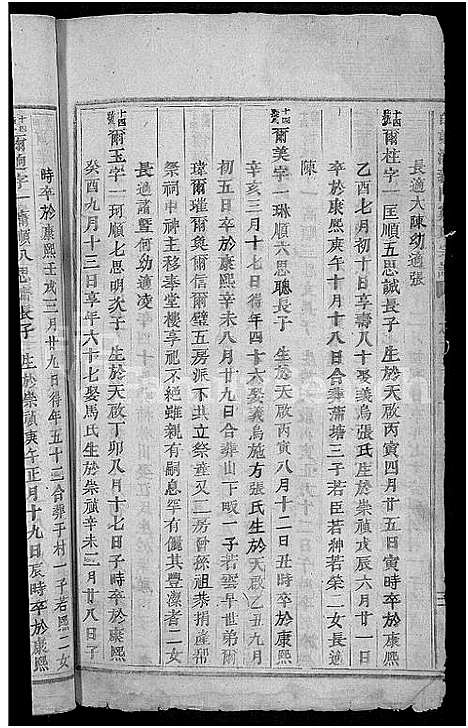 長適大陳幼適張
十四
爾柱字一匡順五思誠長子 生於天啟丙寅四月廿五日寅時卒於康熙
乙酉七月初十日享壽八十娶義烏張氏生於崇禎戊辰六月廿一日
卒於康熙 亥年十月十八日合葬蒲塘三子若臣若紳若榮二女長適
陳
十四
爾美字一琳順六思聰長子 生於天啟丙寅八月十二日丑時卒於康熙
辛亥三月初七日得年四十六娶義烏施方張氏生於天啟乙丑九月
初五日卒於康熙辛未八月廿九日合葬山下畈一子若雲早世弟爾
瑋爾璀爾奐爾信爾璧五房派下共立祭產又二房曾孫祖恭捐產帮
祭祠中神主移奉堂樓享祀不絕雖親有嗣息罕有儷其豐潔者二女
長適諸暨何幼適凌
十四
爾玉字一珂順七思明次子 生於天啟丁卯八月十七日子時卒於康熙
癸酉九月十三日享年六十七娶馬氏生於崇禎辛未二月廿八日子
時卒於康熙壬戌三月廿九日得年五十二合葬于村一子若熙二女
十四
爾 字一 順八思 長子 生於崇禎庚午正月十九日辰時卒於康熙